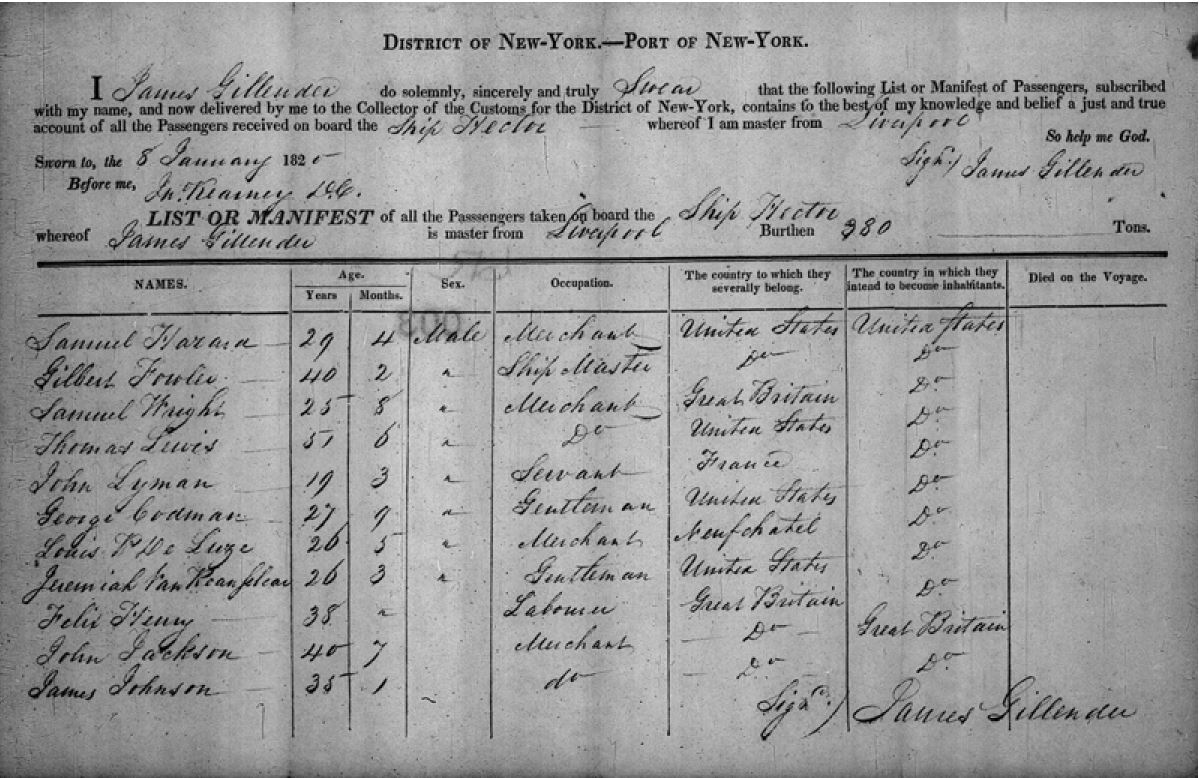 DISTRICT OF NEW-YORK.—PORT OF NEW-YORK.
I James Gillender do solemnly, sincerely and truly Swear that the following List or Manifest of Passengers, subscribed
with my name, and now delivered by me to the Collector of the Customs for the District of New-York, contains to the best of my knowledge and belief a just and true
account of all the Passengers received on board the Ship Hector — whereof I am master from Liverpool
So help me God.
Sworn to, the 8 January 1820
Signd.) James Gillender
Before me, Jn. Kearney D.C.
LIST OR MANIFEST of all the Passsengers taken on board the Ship Hector
whereof James Gillender is master from Liverpool Burthen 380 Tons.
NAMES. Age. Years Months. Sex. Occupation. The country to which they severally belong. The country in which they intend to become inhabitants. Died on the Voyage.
Samuel Hazard — 29 4 Male Merchant United States United States
Gilbert Fowler — 40 2 " Ship Master Do Do
Samuel Wright — 25 8 " Merchant Great Britain Do
Thomas Lewis — 51 6 " Do United States Do
John Lyman — 19 3 " Servant France Do
George Codman — 27 9 " Gentleman United States Do
Louis P De Luze 26 5 " Merchant Neufchatel Do
Jeremiah Van Rensselaer 26 3 " Gentleman United States Do
Felix Henry — 38 " Labourer Great Britain Do
John Jackson — 40 7 Merchant — Do — Great Britain
James Johnson — 35 1 ~ do — Do Do
Signd.) James Gillender